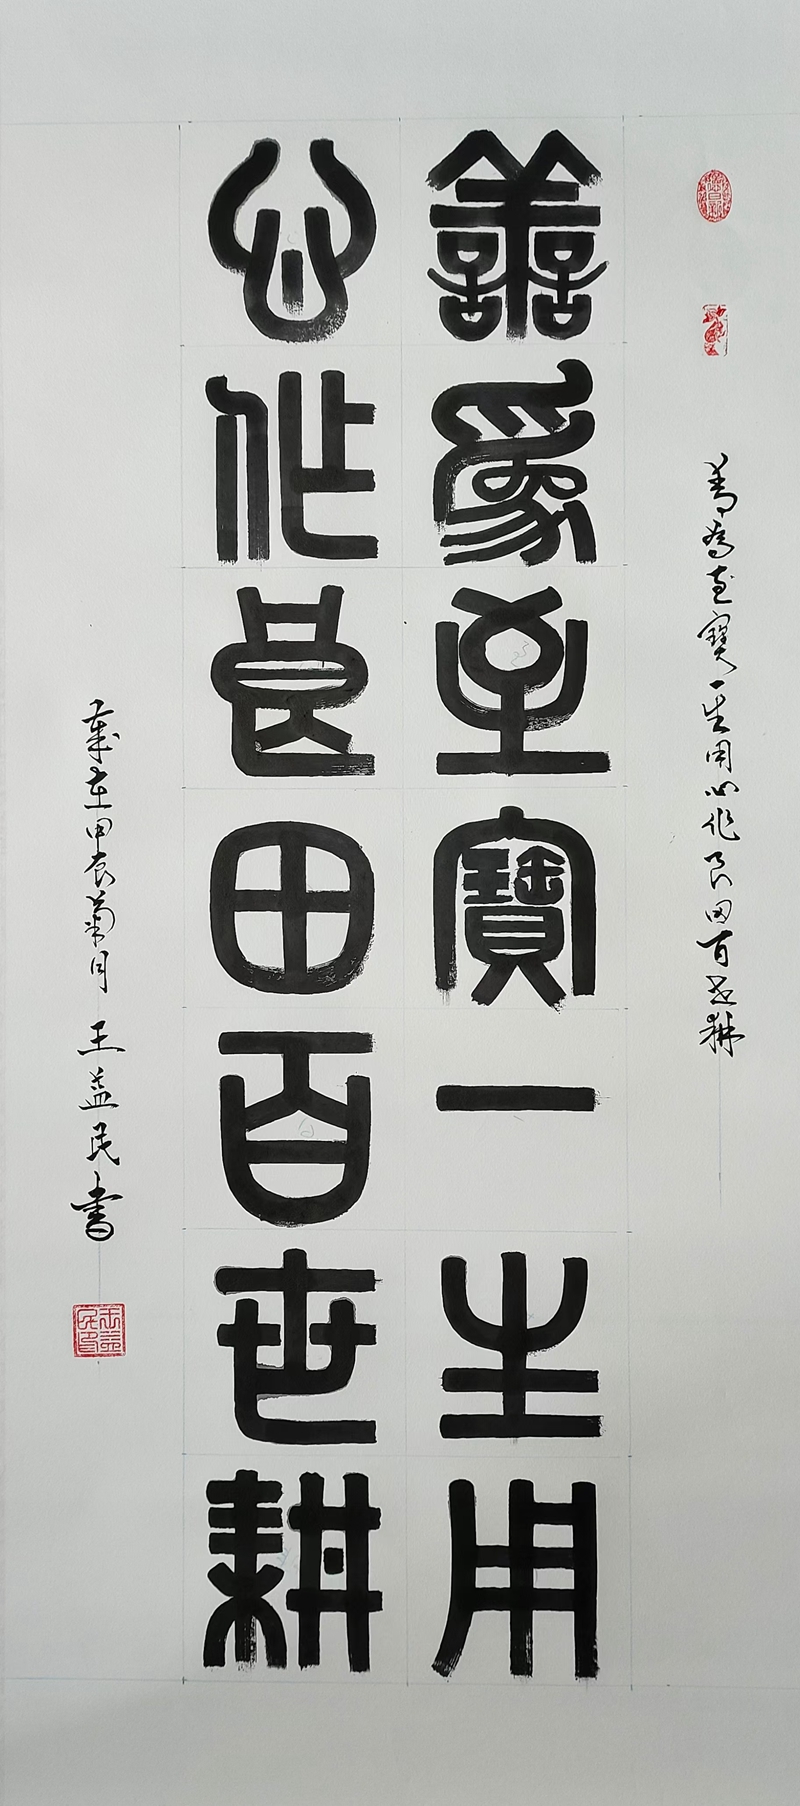 善為至寶一生用
心作良田百世耕
善為至寶一生用心作良田百世耕
歲在甲辰菊月 王益民書
王益民印